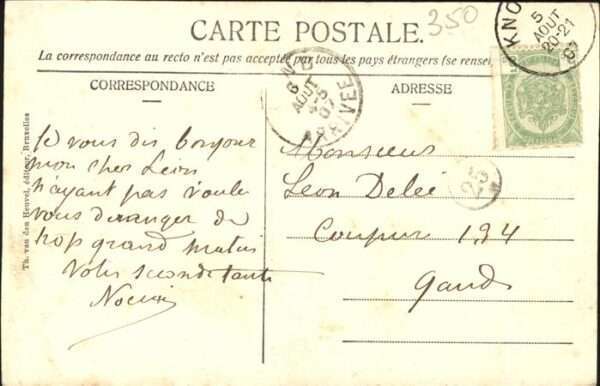 CARTE POSTALE.
350
La correspondance au recto n'est pas acceptée par tous les pays étrangers (se rensei
CORRESPONDANCE
ADRESSE
Je vous dis bonjour
mon cher Léon
n'ayant pas voulu
vous déranger de
trop grand matin
Votre
Monsieur
Léon
Coupure 194
Gand
KNO
5
AOUT
20-21
07
6
AOUT
4-5
07
ARRIVEE
25
Th. van den Heuvel, éditeur, Bruxelles